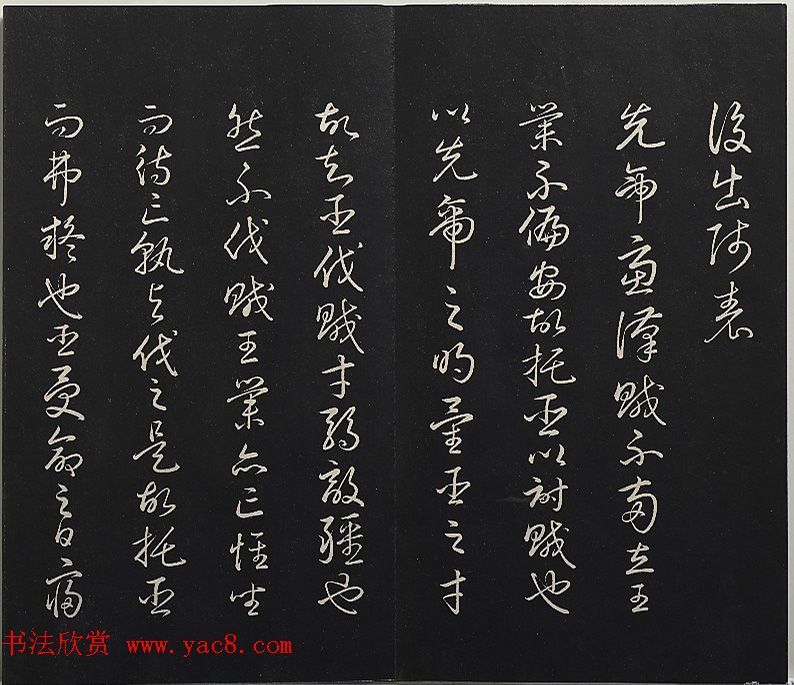 後出師表
先帝慮漢賊不兩立王
業不偏安故托臣以討賊也
以先帝之明量臣之才
故知臣伐賊才弱敵彊也
然不伐賊王業亦亡惟坐
而待亡孰與伐之是故托臣
而弗疑也臣受命之日寢
书法欣赏 www.yac8.com